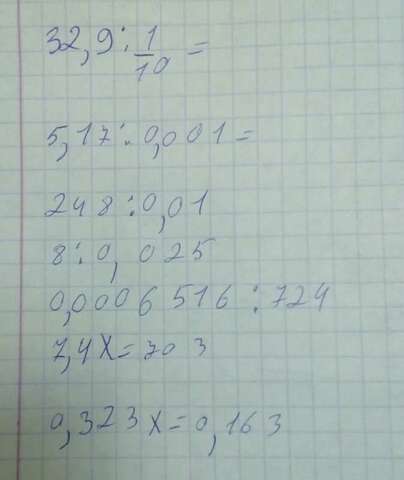 32,9 : 1/10 =
5,17 : 0,001 =
248 : 0,01
8 : 0,025
0,0006516 : 724
7,4x = 703
0,323x = 0,163